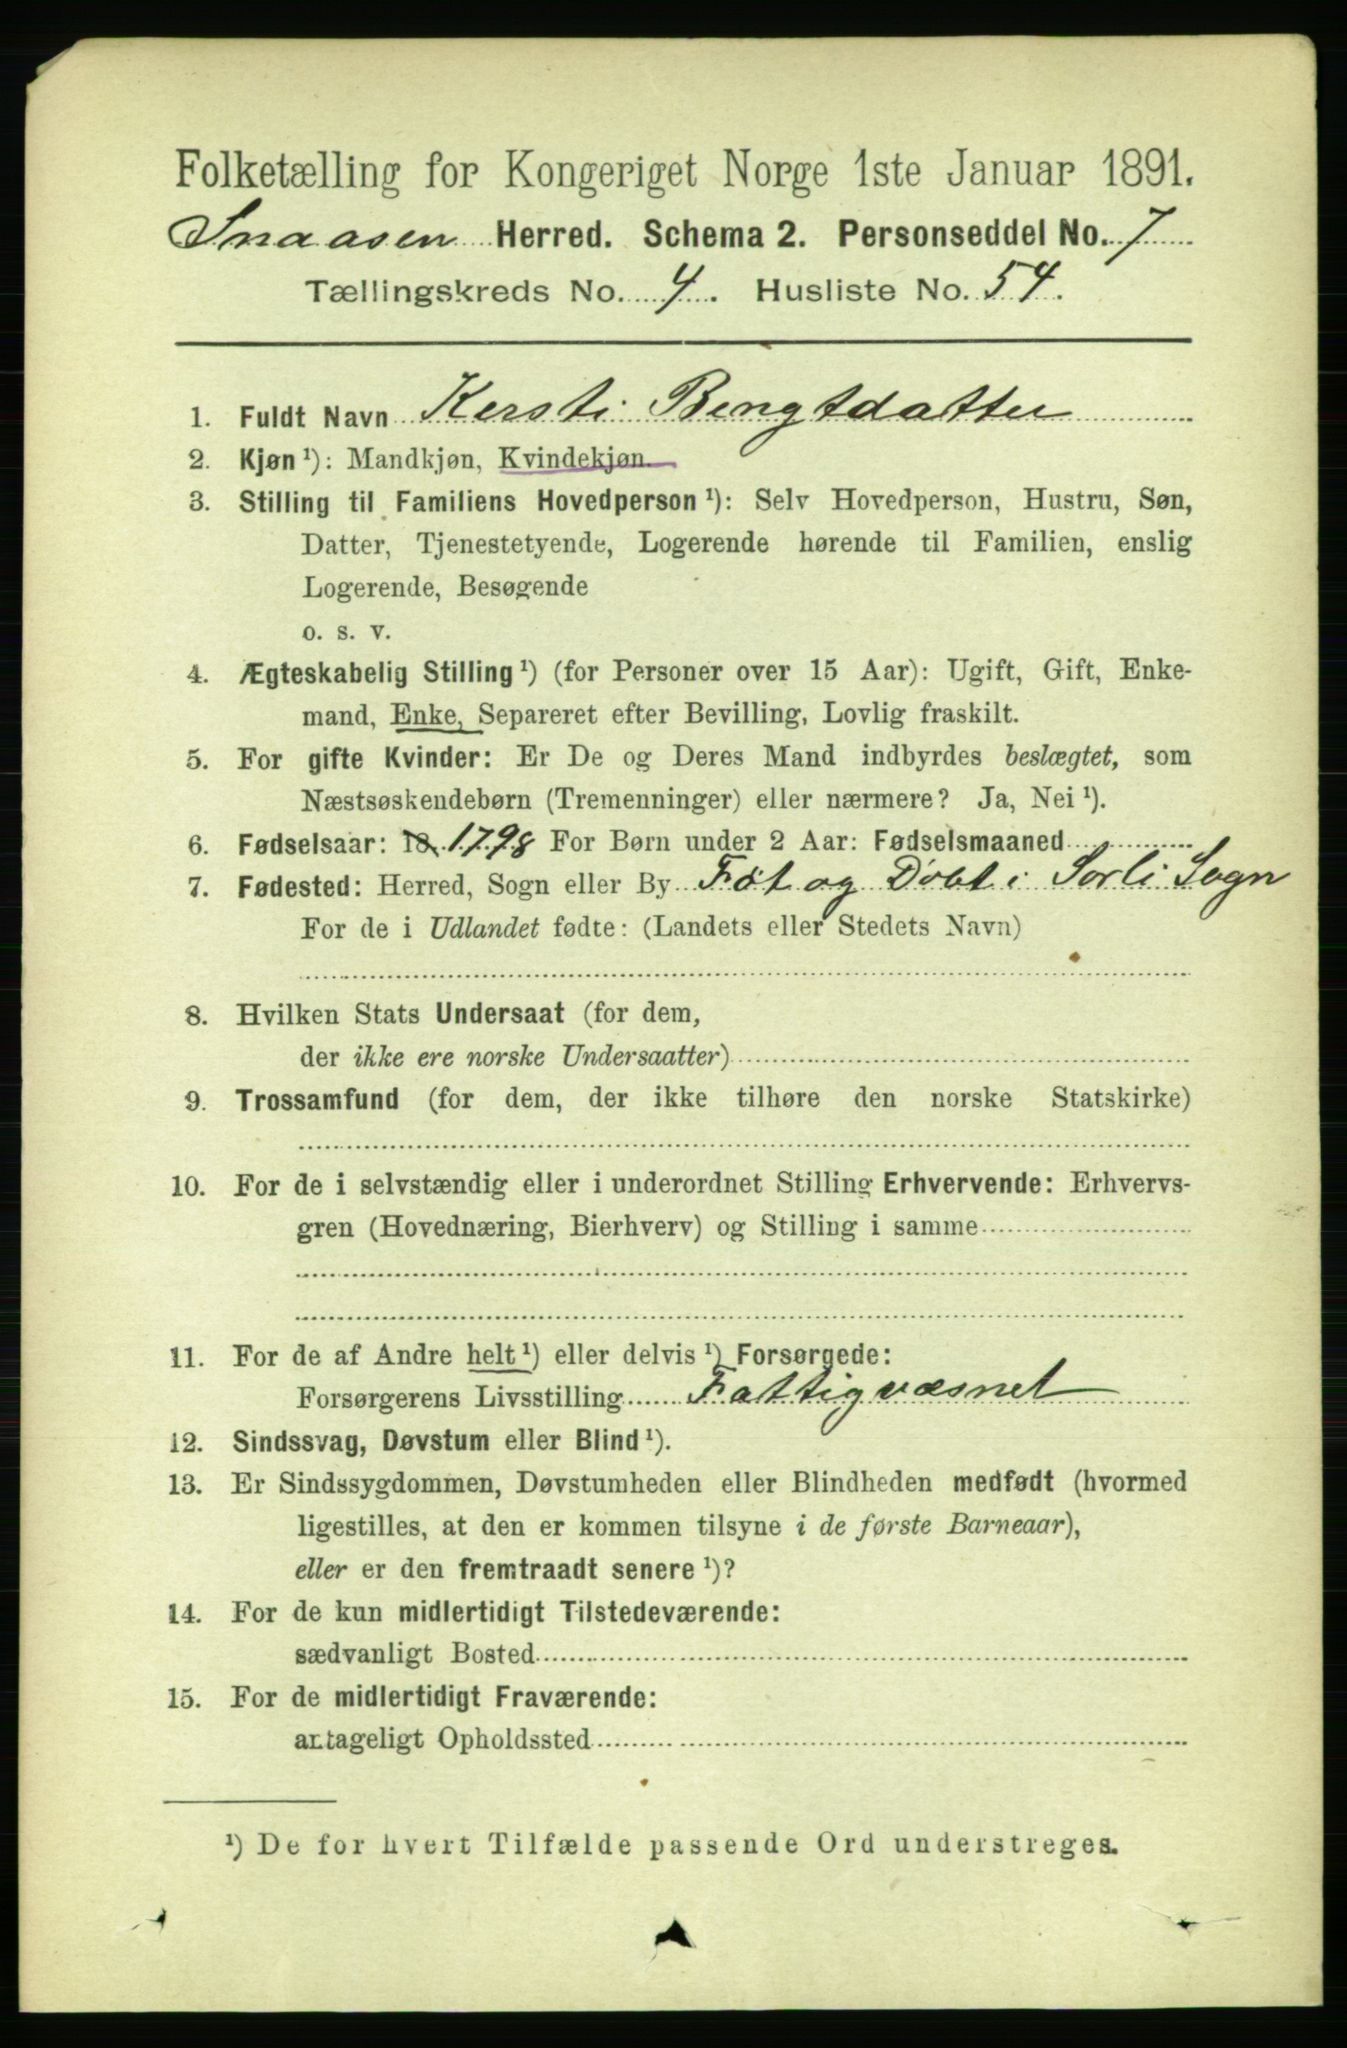 Folketælling for Kongeriget Norge 1ste Januar 1891.
Snaasen Herred. Schema 2. Personseddel No. 7
Tællingskreds No. 4. Husliste No. 54.
1. Fuldt Navn Kersti Bengtdatter
2. Kjøn ¹): Mandkjøn, Kvindekjøn.
3. Stilling til Familiens Hovedperson ¹): Selv Hovedperson, Hustru, Søn,
Datter, Tjenestetyende, Logerende hørende til Familien, enslig
Logerende, Besøgende
o. s. v.
4. Ægteskabelig Stilling ¹) (for Personer over 15 Aar): Ugift, Gift, Enke-
mand, Enke, Separeret efter Bevilling, Lovlig fraskilt.
5. For gifte Kvinder: Er De og Deres Mand indbyrdes beslægtet, som
Næstsøskendebørn (Tremenninger) eller nærmere? Ja, Nei ¹).
6. Fødselsaar: 18 1798 For Børn under 2 Aar: Fødselsmaaned
7. Fødested: Herred, Sogn eller By Føt og Døbt i Sorli Sogn
For de i Udlandet fødte: (Landets eller Stedets Navn)
8. Hvilken Stats Undersaat (for dem,
der ikke ere norske Undersaatter)
9. Trossamfund (for dem, der ikke tilhøre den norske Statskirke)
10. For de i selvstændig eller i underordnet Stilling Erhvervende: Erhvervs-
gren (Hovednæring, Bierhverv) og Stilling i samme
11. For de af Andre helt ¹) eller delvis ¹) Forsørgede:
Forsørgerens Livsstilling Fattigvæsnet
12. Sindssvag, Døvstum eller Blind ¹).
13. Er Sindssygdommen, Døvstumheden eller Blindheden medfødt (hvormed
ligestilles, at den er kommen tilsyne i de første Barneaar),
eller er den fremtraadt senere ¹)?
14. For de kun midlertidigt Tilstedeværende:
sædvanligt Bosted
15. For de midlertidigt Fraværende:
antageligt Opholdssted
¹) De for hvert Tilfælde passende Ord understreges.